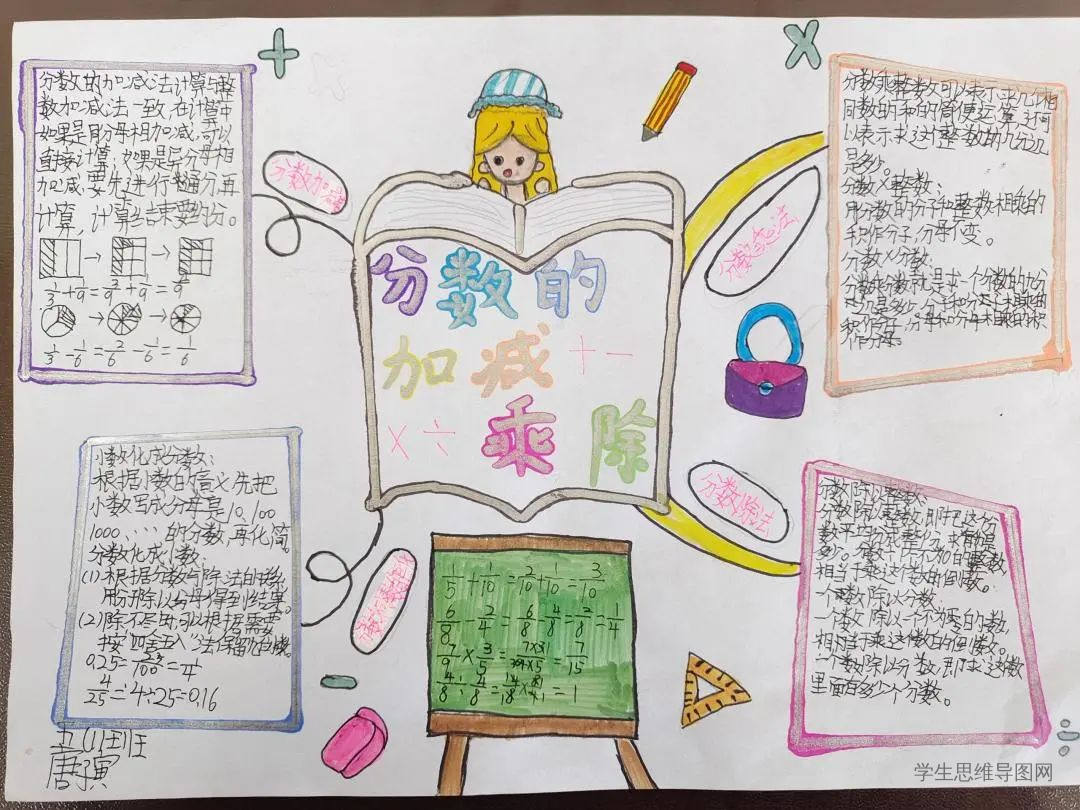 分数的加减法计算与整
数加减法一致,在计算中
如果是同分母相加减,可以
直接计算;如果是异分母相
加减要先进行通分再
计算,计算结束要约分。
1/3+1/9=3/9+1/9=4/9
1/3-1/6=2/6-1/6=1/6
分数加减
分数的
加减 + -
× ÷ 乘除
分数乘法
分数乘整数可以表示求几个相
同数的和的简便运算,还可
以表示求这个整数的几分之几
是多少。
分数×整数:
用分数的分子和整数相乘的
积作分子,分母不变。
分数×分数:
分数乘分数就是求一个分数的几分
之几是多少。分子和分子相乘的
积作分子,分母和分母相乘的积
作分母。
小数化成分数:
根据小数的意义,先把
小数写成分母是10,100
1000、、、的分数,再化简。
分数化成小数:
(1)根据分数与除法的关系
用分子除以分母得到结果。
(2)除不尽时,可以根据需要
按"四舍五入"法保留几位小数。
0.25=25/100=1/4
4/25=4÷25=0.16
五(1)班
1/5+1/10=2/10+1/10=3/10
6/8-2/4=6/8-4/8=2/8=1/4
7/9×3/5=7/15
4/8÷4/8=1
分数除法
分数除以整数:
分数除以整数,即把这个分
数平均分成整数份,求每份是
多少。分数除以不为0的整数
相当于乘这个数的倒数。
一个数除以分数:
一个数除以一个不为零的数,
相当于乘这个数的倒数。
一个数除以分数,即求这个数
里面有多少个分数。
学生思维导图网